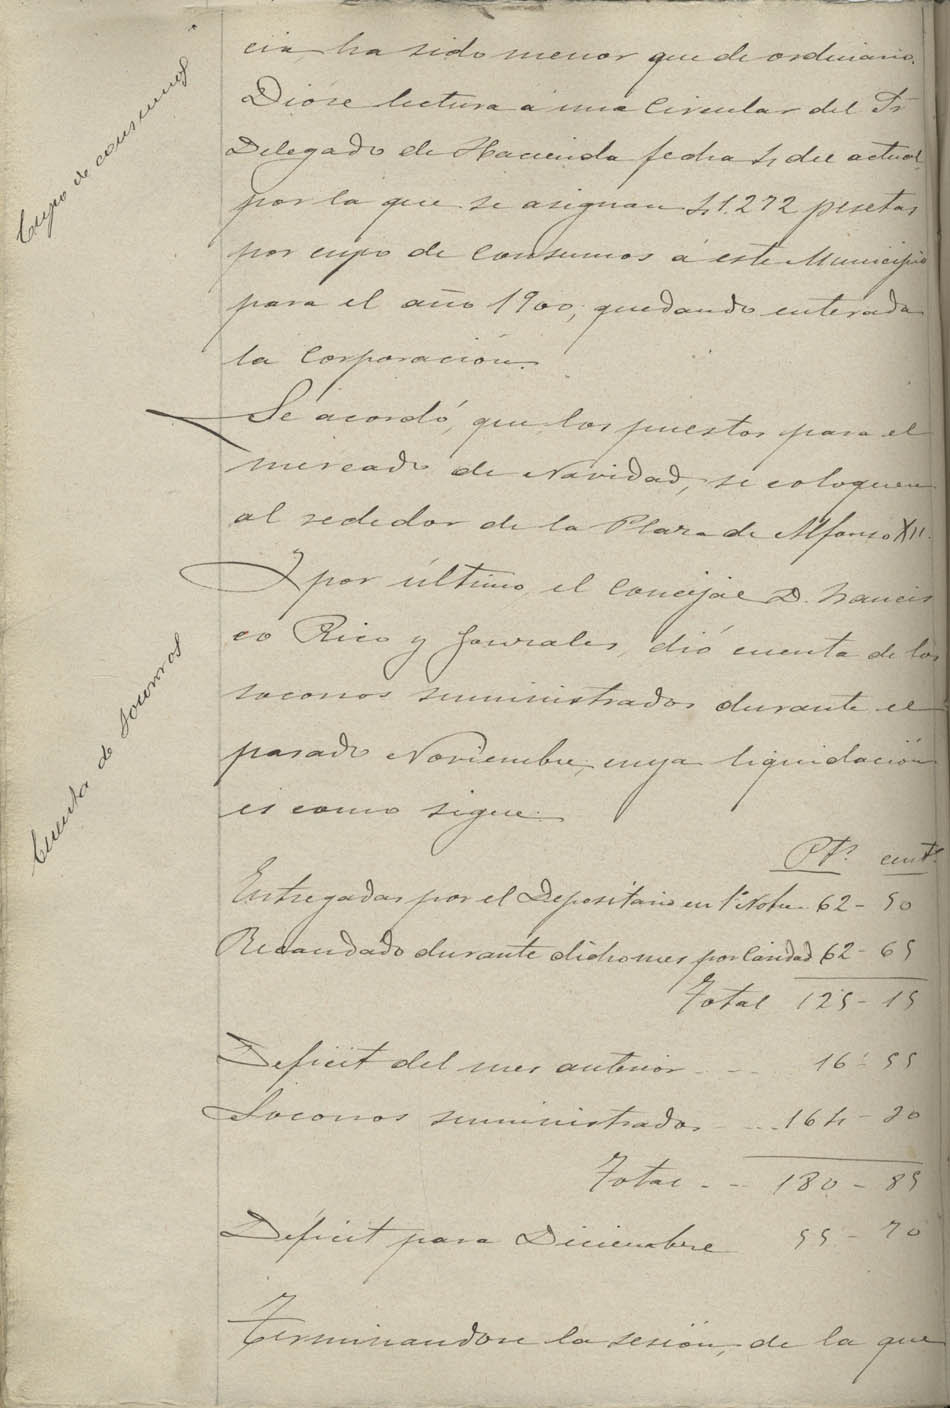 cia, ha sido menor que de ordinario.
Cupo de consumos
Dióse lectura á una Circular del Sr
Delegado de Hacienda fecha 4 del actual,
por la que se asignan 41.272 pesetas
por cupo de consumos á este Municipio
para el año 1900, quedando enterada
la Corporación.
Se acordó, que los puestos para el
mercado de Navidad, se coloquen
al rededor de la Plaza de Alfonso XII.
Y por último, el concejal D. Francis
co Rico y Gonzales, dió cuenta de los
Cuenta de Socorros
socorros suministrados durante el
pasado Noviembre, cuya liquidación
es como sigue:
Pts. cents.
Entregadas por el Depositario en 1º Nobre 62 - 50
Recaudado durante dicho mes por Caridad 62 - 65
Total 125 - 15
Déficit del mes anterior - - - 16 - 55
Socorros suministrados - - - 164 - 30
Total - - 180 - 85
Déficit para Diciembre 55 - 70
Terminandose la sesión, de la que